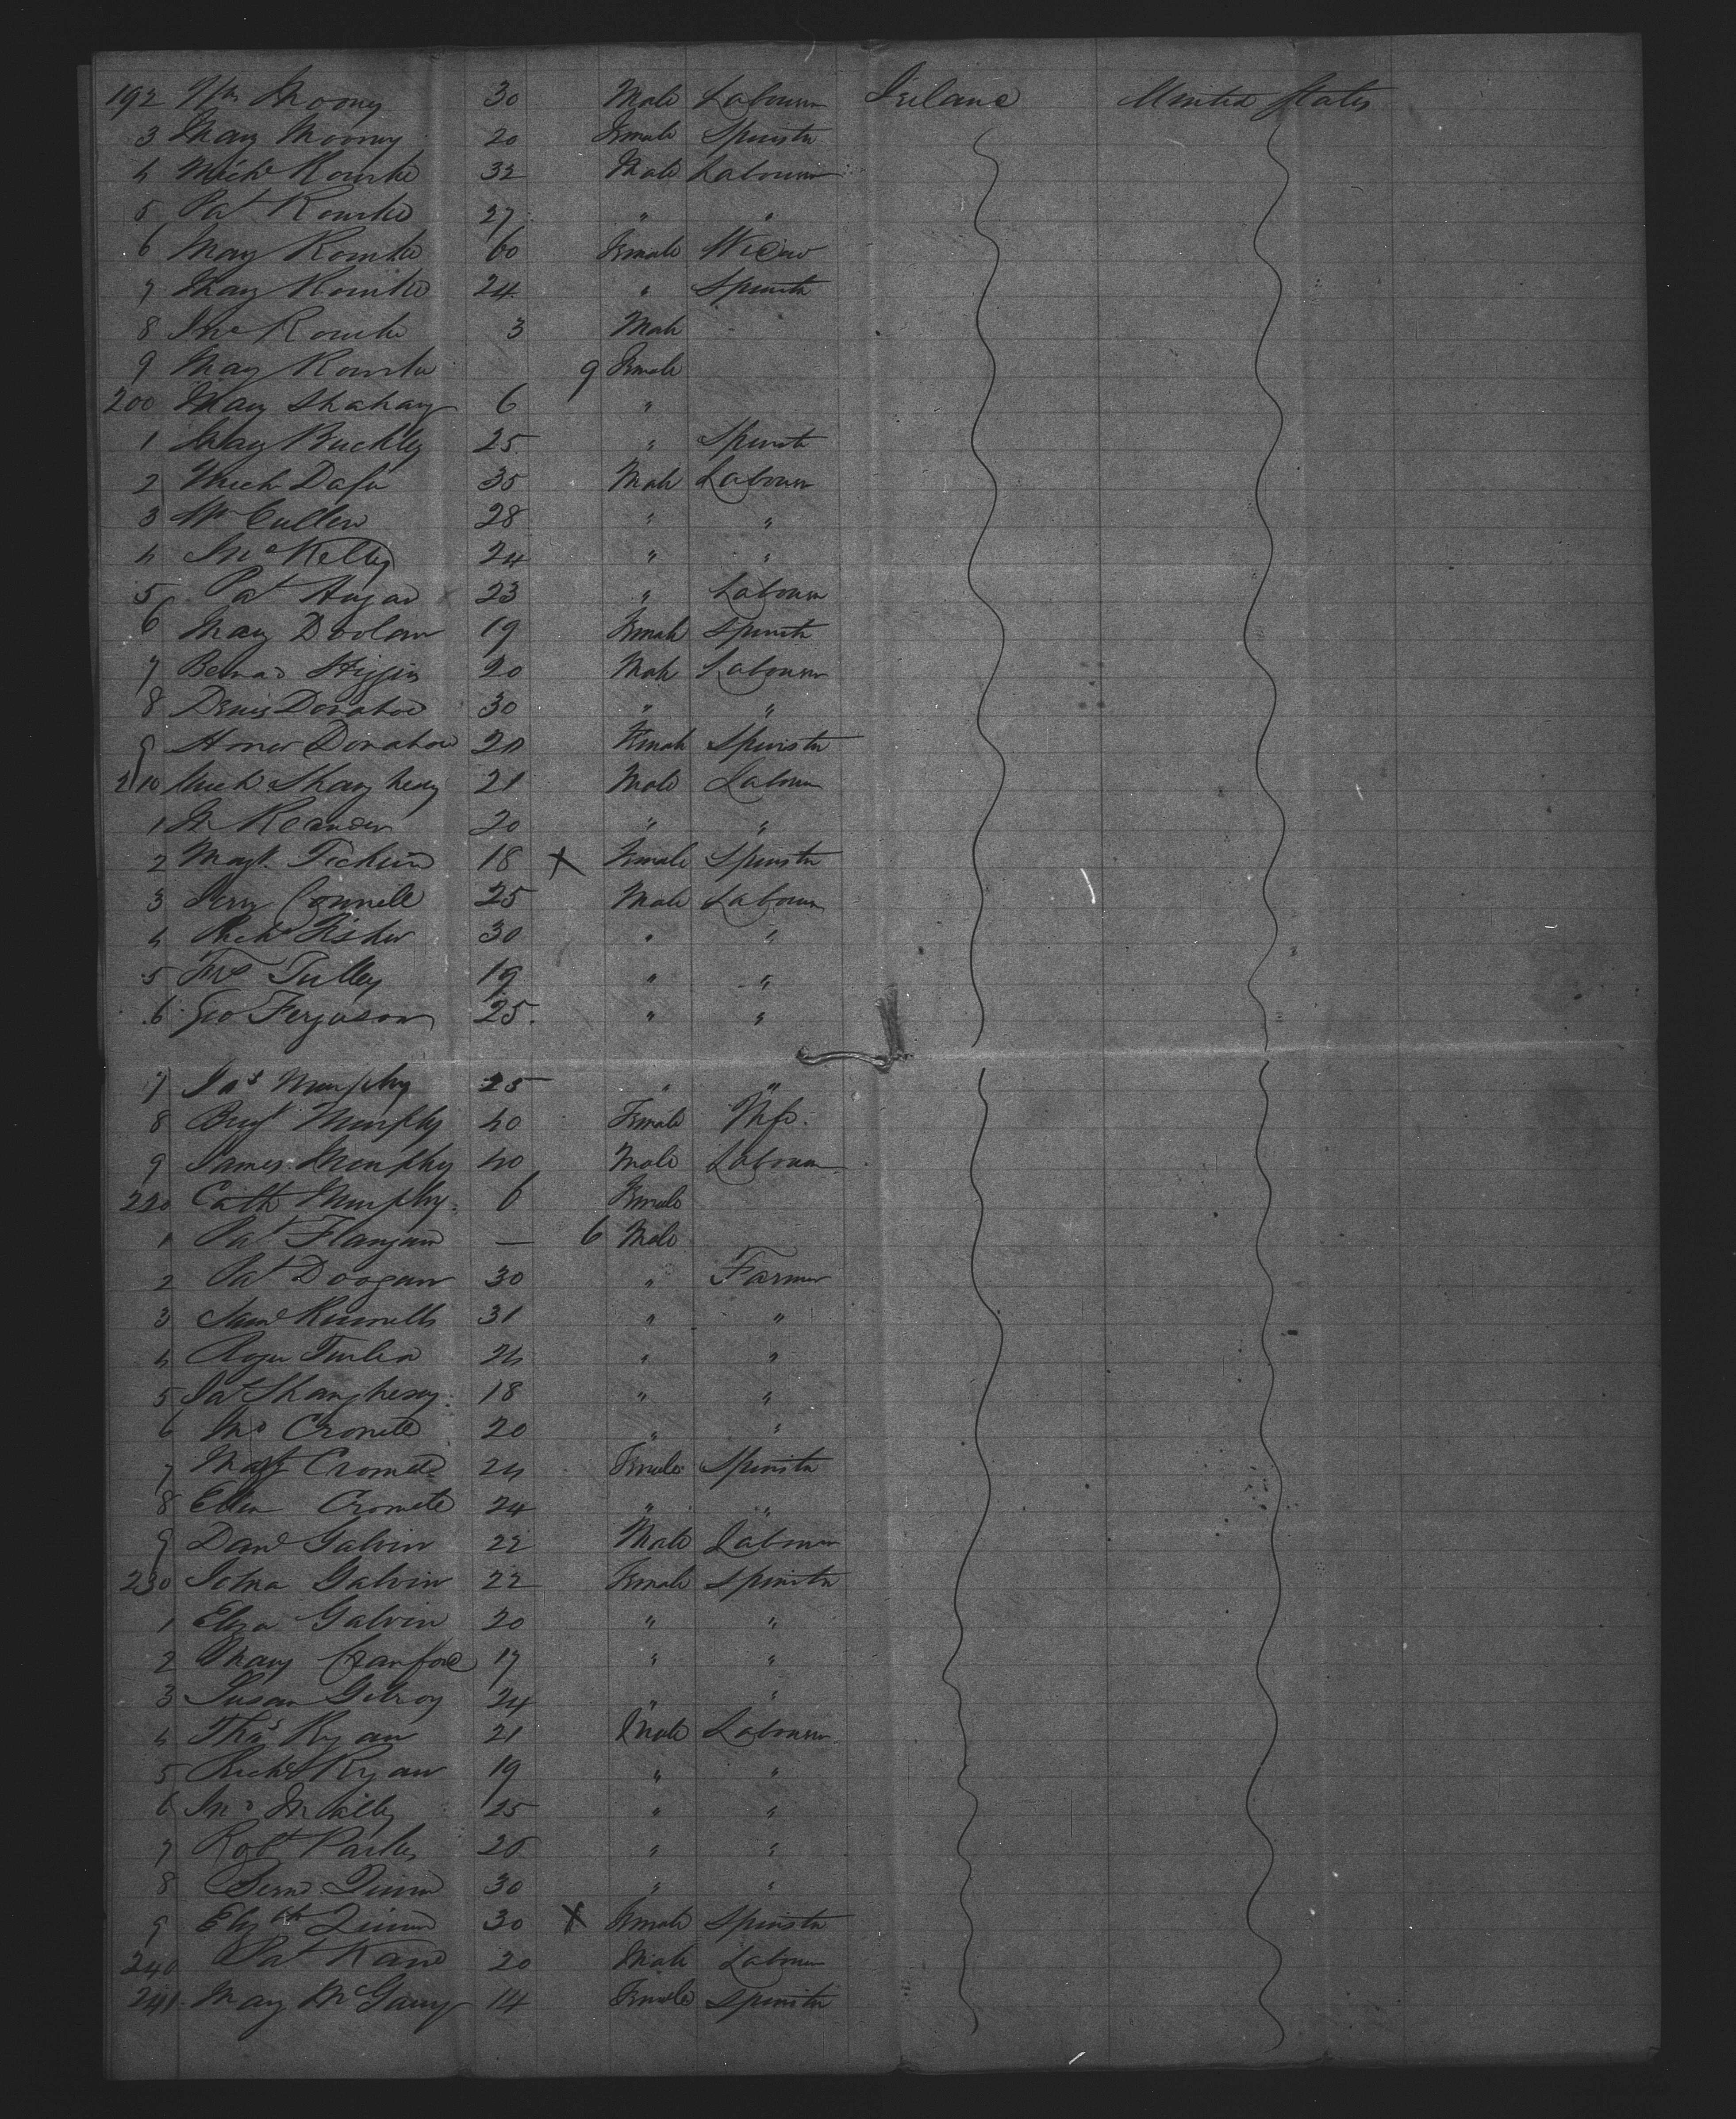 192 Wm Mooney 30 Male Labourer Ireland United States
3 Mary Mooney 20 Female Spinster
4 Michl Rourke 32 Male Labourer
5 Pat Rourke 27 " "
6 Mary Rourke 60 Female Widow
7 Mary Rourke 24 " Spinster
8 Jno Rourke 3 Male
9 Mary Rourke 9 Female
200 Mary 6 "
1 Mary Buckley 25 " Spinster
2 Mich 35 Male Labourer
3 Wm Cullen 28 " "
4 Jno Kelly 24 " "
5 Pat 23 " Labourer
6 Mary Doolan 19 Female Spinster
7 Bernard Higgins 20 Male Labourer
8 Denis Donahoe 30 " "
9 Honor Donahoe 20 Female Spinster
210 Mich Shaughnesy 21 Male Labourer
1 20 " "
2 Magt 18 X Female Spinster
3 Jerry Connell 25 Male Labourer
4 Richd Fisher 30 " "
5 Tulley 19 " "
6 Geo Ferguson 25 " "
7 Jas Murphy 25 " "
8 Brigt Murphy 40 Female Wife
9 James Murphy 40 Male Labourer
220 Cath Murphy 6 Female
1 Pat Flanigan — 6 Male
2 Pat Doogan 30 " Farmer
3 Saml 31 " "
4 Roger 24 " "
5 Pat Shaughnesy 18 " "
6 20 " "
7 24 Female Spinster
8 Ellen 24 " "
9 Danl Galvin 22 Male Labourer
230 Johna Galvin 22 Female Spinster
1 Eliza Galvin 20 " "
2 Mary Cranford 17 " "
3 Susan Gilroy 24 " "
4 Thos Ryan 21 Male Labourer
5 Richd Ryan 19 " "
6 Jno 25 " "
7 Robt 26 " "
8 Bernd Quinn 30 " "
9 Elizth Quinn 30 X Female Spinster
240 Pat Kane 20 Male Labourer
241 Mary McGarry 14 Female Spinster